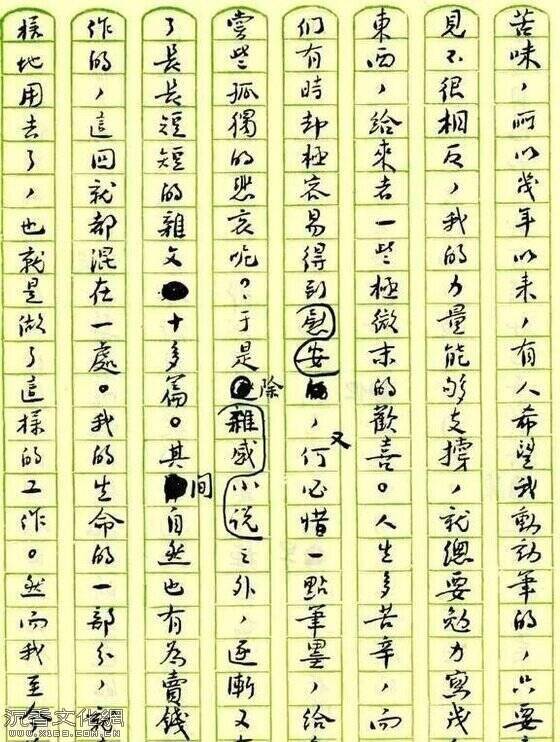 苦味，所以幾年以來，有人希望我動動筆的，只要
見不很相反，我的力量能够支撑，就總要勉力寫幾
東西，給來者一些極微末的歡喜。人生多苦辛，而
们有時却極容易得到慰安，又何必惜一點筆墨，給
嘗些孤獨的悲哀呢？于是除雜感小说之外，逐漸又
了長長短短的雜文十多篇。其間自然也有為賣錢
作的，這回就都混在一處。我的生命的一部分，就
樣地用去了，也就是做了這樣的工作。然而我至今
沉香文化網